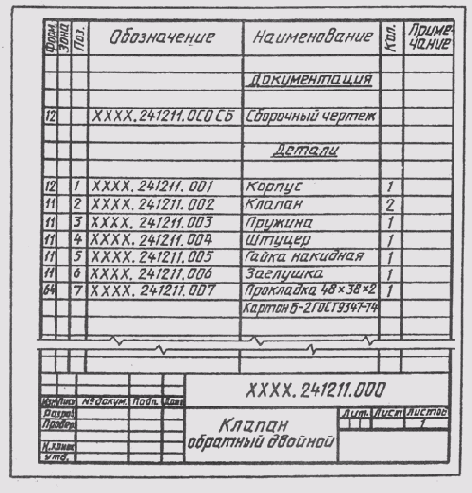 Форм. Зона Поз. Обозначение Наименование Кол. Приме-чание
Документация
12 XXXX.241211.000 СБ Сборочный чертеж
Детали
12 1 XXXX.241211.001 Корпус 1
11 2 XXXX.241211.002 Клапан 2
11 3 XXXX.241211.003 Пружина 1
11 4 XXXX.241211.004 Штуцер 1
11 5 XXXX.241211.005 Гайка накидная 1
11 6 XXXX.241211.006 Заглушка 1
64 7 XXXX.241211.007 Прокладка 48×38×2 1
Картон Б-2 ГОСТ 9347-74
XXXX.241211.000
Изм Лист № докум. Подп. Дата
Разраб
Провер
Лит. Лист Листов
1
Клапан
обратный двойной
Н.конт
Утв.